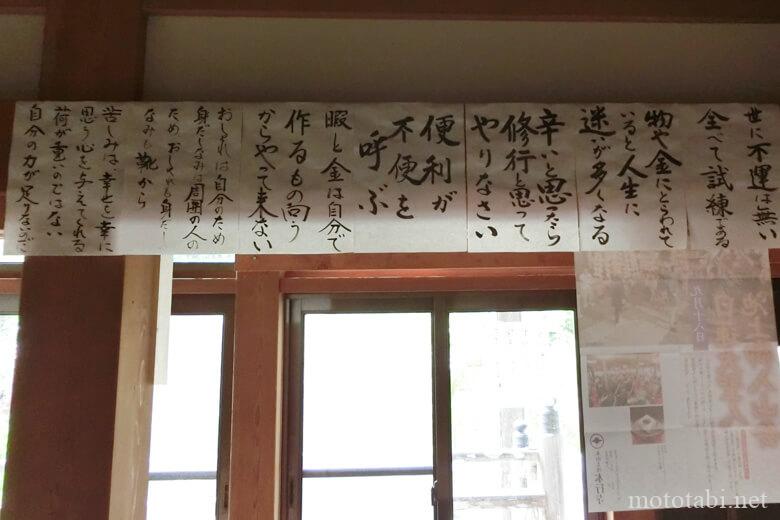 世に不運は無い
全べて試練である
物や金にとらわれて
いると人生に
迷いが多くなる
辛いと思ったら
修行と思って
やりなさい
便利が
不便を
呼ぶ
暇と金は自分で
作るもの向う
からやって来ない
おしゃれは自分のため
身だしなみは周囲の人の
ため おしゃれも身だし
なみも靴から
苦しみは、幸せを幸に
思う心を与えてくれる
荷が重いのではない
自分の力が足らないのだ
九月十八日
mototabi.net